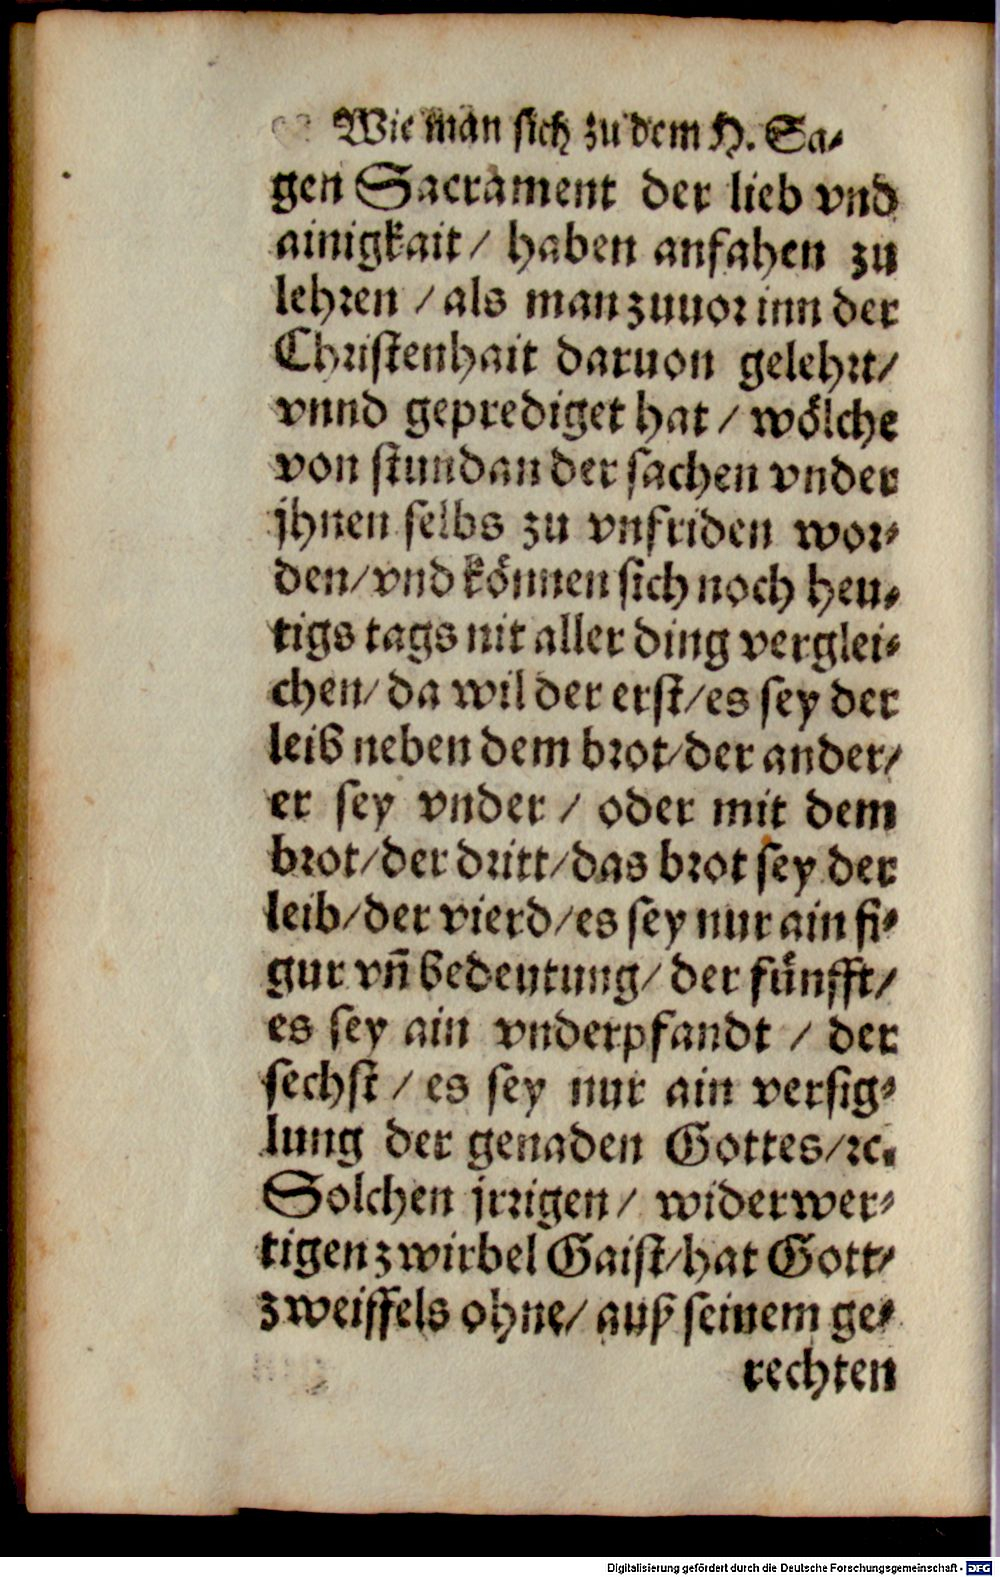 Wie man sich zu dem H. Sa⸗
gen Sacrament der lieb vnd
ainigkait / haben anfahen zu
lehren / als man zuuor inn der
Christenhait daruon gelehrt/
vnnd geprediget hat / wölche
von stundan der sachen vnder
jhnen selbs zu vnfriden wor⸗
den/ vnd können sich noch heu⸗
tigs tags nit aller ding verglei⸗
chen/ da wil der erst/ es sey der
leib neben dem brot/ der ander/
er sey vnder / oder mit dem
brot/ der dritt/ das brot sey der
leib/ der vierd/ es sey nur ain fi⸗
gur vñ bedeutung/ der fünfft/
es sey ain vnderpfandt / der
sechst / es sey nur ain versig⸗
lung der genaden Gottes/ ꝛc.
Solchen jrrigen / widerwer⸗
tigen zwirbel Gaist/ hat Gott/
zweiffels ohne/ auß seinem ge⸗
rechten
Digitalisierung gefördert durch die Deutsche Forschungsgemeinschaft - DFG